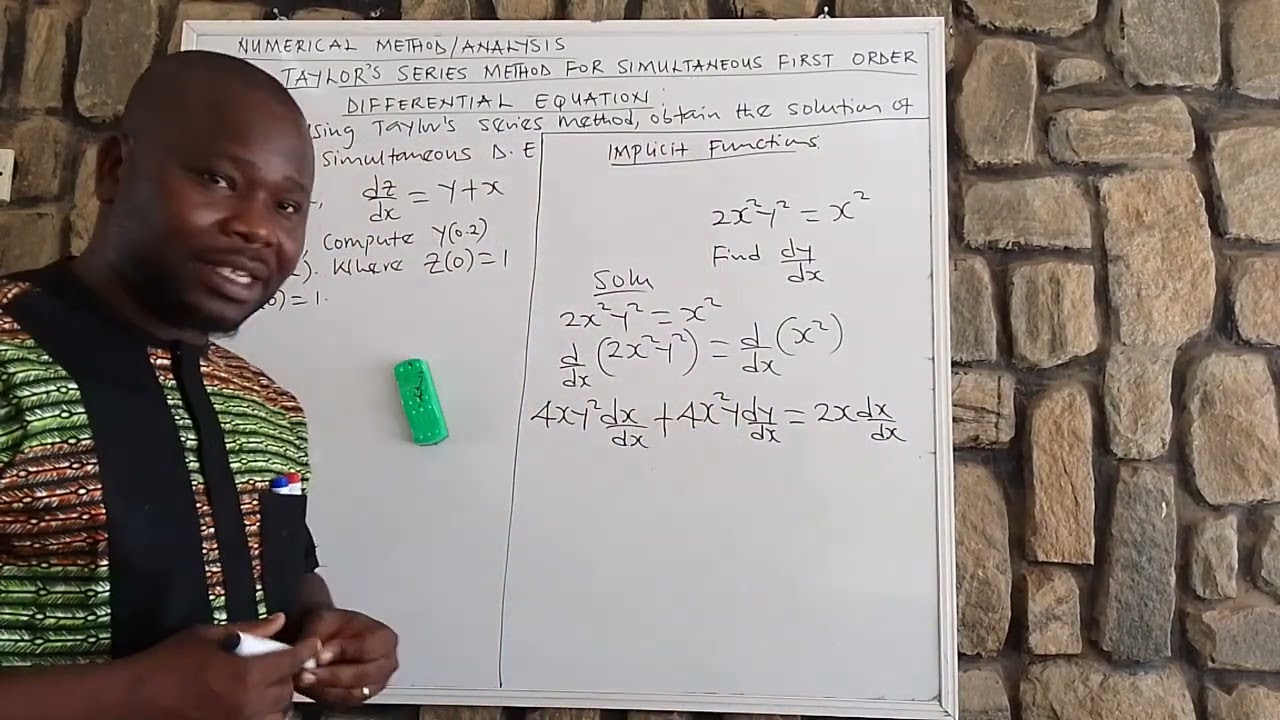 NUMERICAL METHOD/ANALYSIS
TAYLOR'S SERIES METHOD FOR SIMULTANEOUS FIRST ORDER
DIFFERENTIAL EQUATION:
using Taylor's series method, obtain the solution of
simultaneous D.E
dz/dx = y+x
compute y(0.2)
). where z(0)=1
)=1.
Implicit Functions
2x²y² = x²
Find dy/dx
Soln
2x²y² = x²
d/dx (2x²y²) = d/dx (x²)
4xy² dx/dx + 4x²y dy/dx = 2x dx/dx